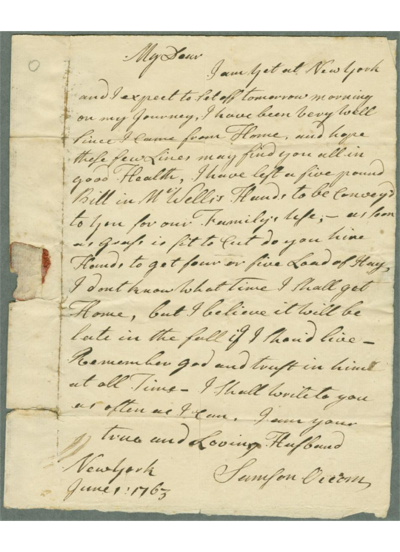 My Dear
I am Yet at New York
and I expect to Set off tomorrow morning
on my Journey, I have been very well
Since I came from Home, and hope
these few Lines may find you all in
good Health, I have left a five pound
Bill in Mr Wells's Hands to be Convey'd
to you for our Family's Use, – as soon
as grass is fit to Cut do you hire
Hands to get four or five Load of Hay,
I dont know what time I shall get
Home, but I believe it will be
late in the fall if I shoud live –
Remember god and trust in him
at all Time – I shall write to you
as often as I can, I am your
true and Loving Husband
Samson Occom
New York
June 1: 1763